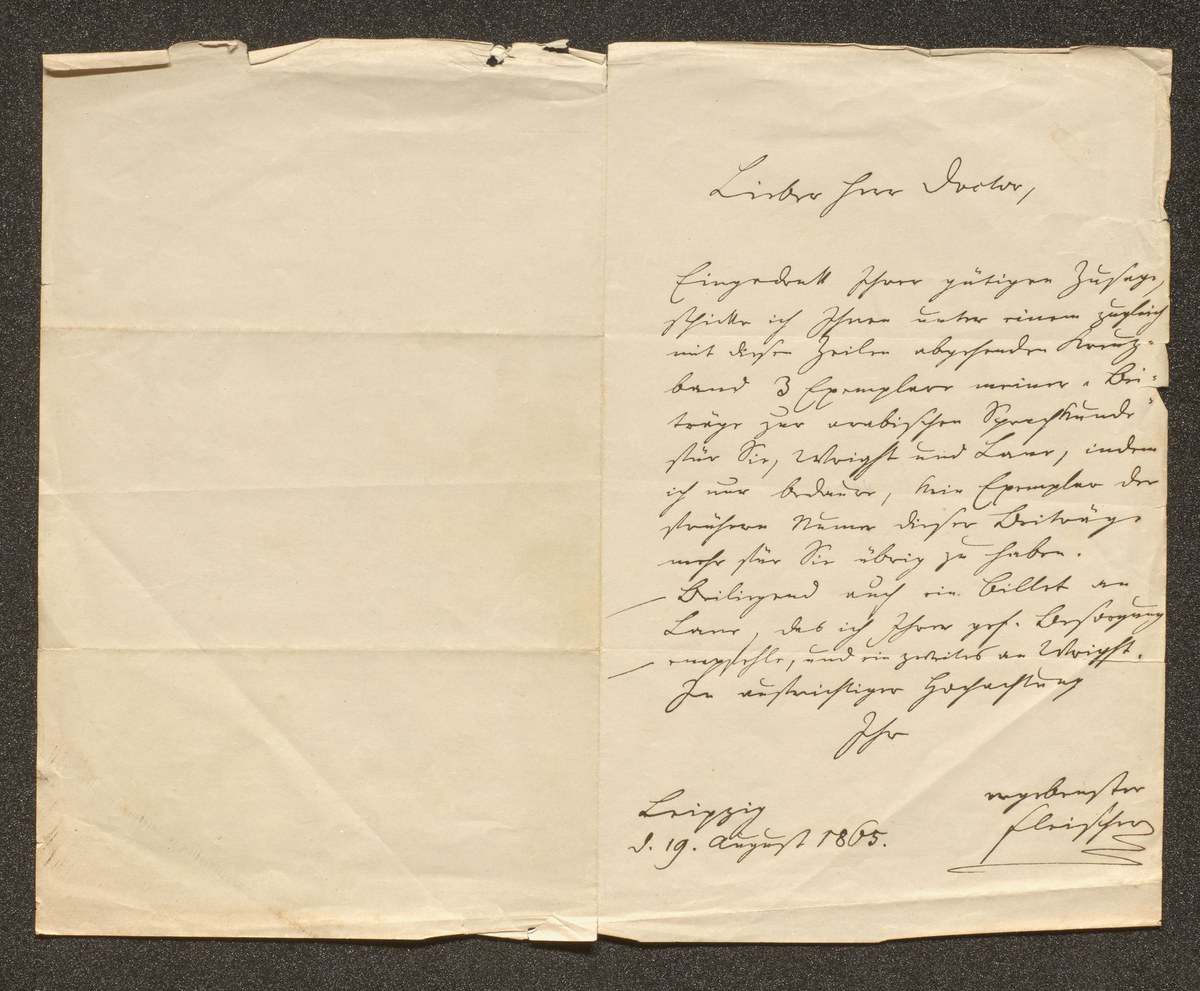 Lieber Herr Doctor,
Eingedenk Ihrer gütigen Zusage,
schicke ich Ihnen unter einem zugleich
mit diesen Zeilen abgehenden Kreuz-
band 3 Exemplare meiner „Bei-
träge zur arabischen Sprachkunde“
für Sie, Wright und Lane, indem
ich nur bedaure, kein Exemplar der
frühern Numer dieser Beiträge
mehr für Sie übrig zu haben.
Beiliegend auch ein Billet an
Lane, das ich Ihrer gef. Besorgung
empfehle, und ein zweites an Wright.
In aufrichtiger Hochachtung
Ihr
ergebenster
Fleischer
Leipzig
d. 19. August 1865.